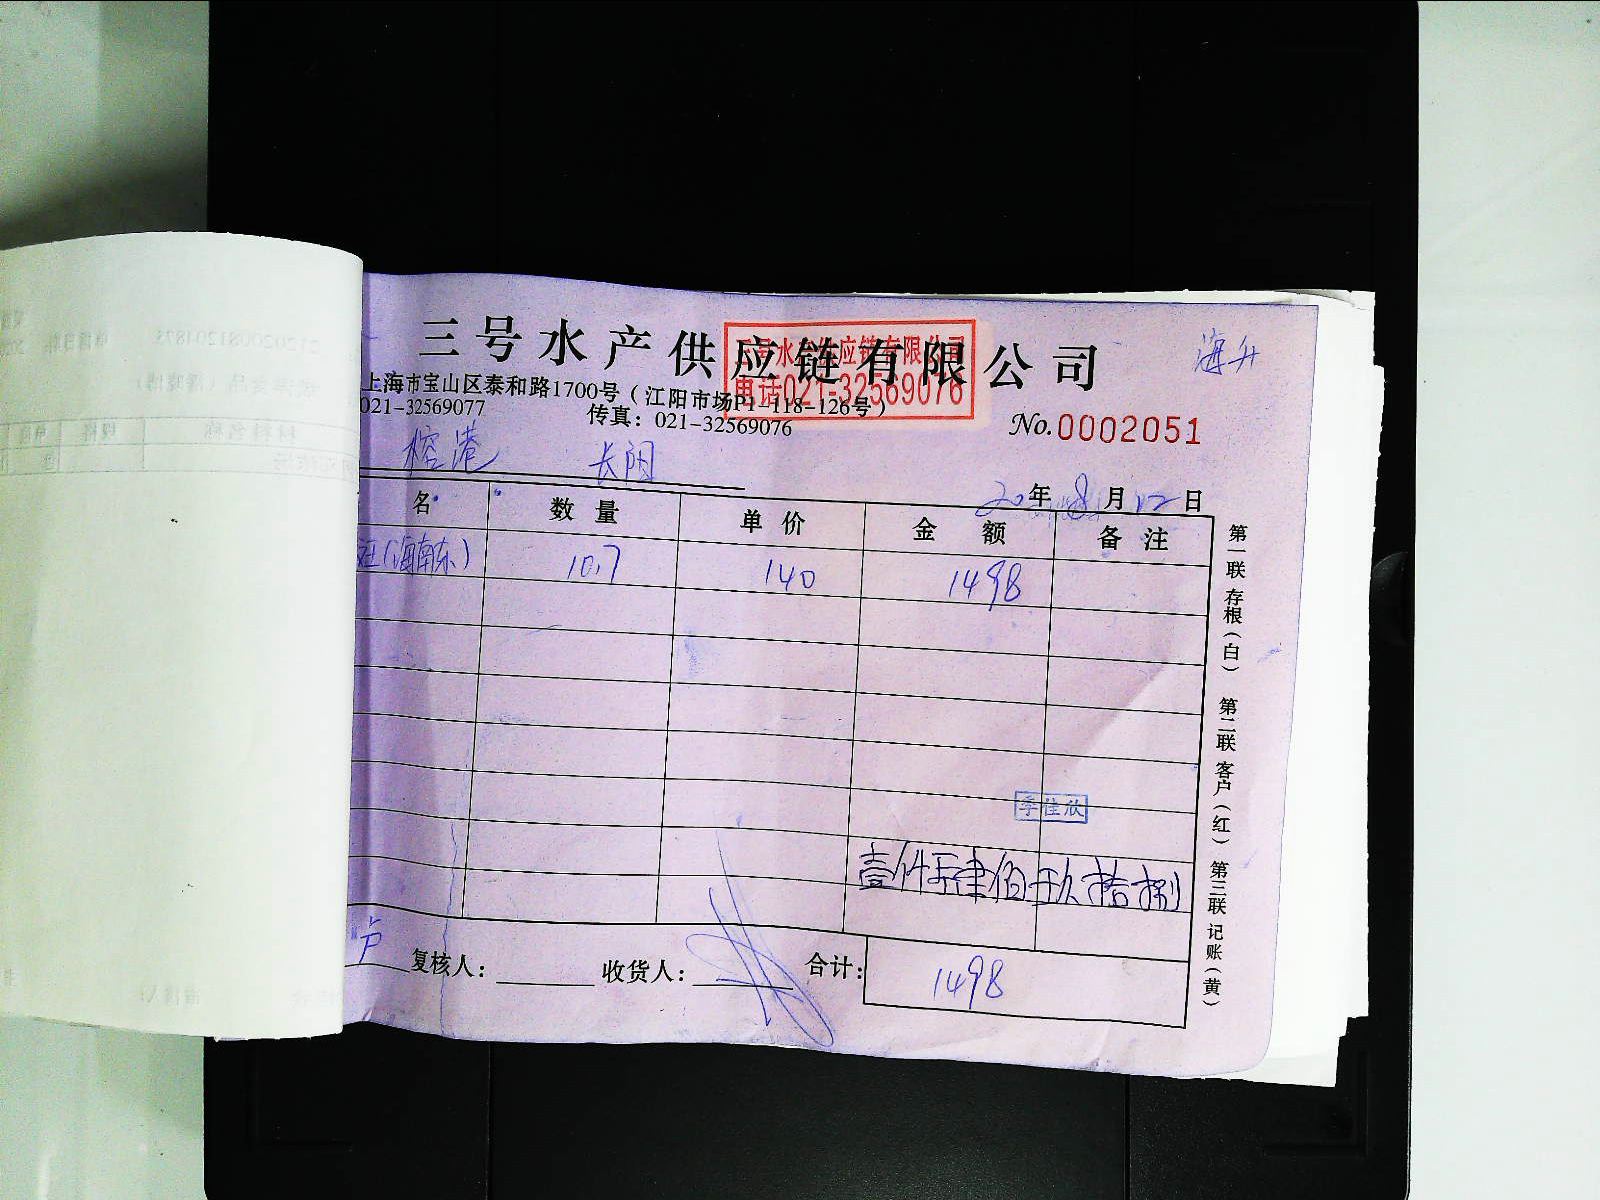 三号水产供应链有限公司
海升
三号水产供应链有限公司
电话021-32569076
上海市宝山区泰和路1700号（江阳市场P1-118-126号）
021-32569077 传真：021-32569076
No.0002051
榕港 长阳
20年8月12日
名 数量 单价 金额 备注
(海南东) 10.7 140 1498
季佳欣
壹仟肆佰玖拾捌
卢 复核人： 收货人： 合计： 1498
第一联 存根（白） 第二联 客户（红） 第三联 记账（黄）